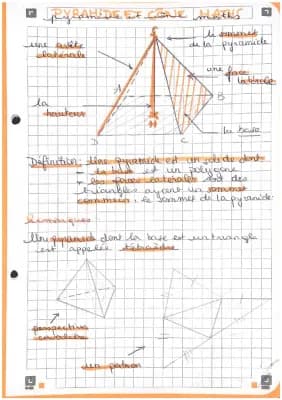 PYRAMIDE ET CÔNE MATHS
pyramide et cône maths
le sommet
de la pyramide
une arête
latérale
une face
latérale
S
A
B
la
hauteur
H
D
C
la base
Définition : Une pyramide est un solide dont
- la base est un polygone
- les faces latérales sont des
triangles ayant un sommet
commun : le sommet de la pyramide.
Remarques
Une pyramide dont la base est un triangle
est appelée tétraèdre
perspective
cavalière
un patron